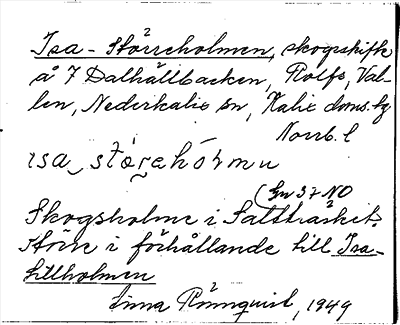 Isa-Störreholmen, skogsskifte
å 7 Dalhällbacken, Rolfs, Val-
len, Nederkalix sn, Kalix doms. hg
Norrb. l
ısa stórehólmu
(Gn 37 NO
Skogsholme i Saltträsket.
Större i förhållande till Isa-
lillholmen
Linna Rönnquist, 1949